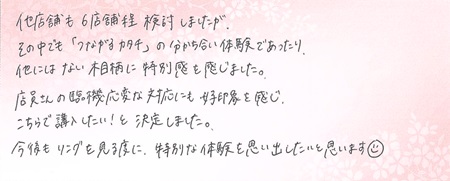 他店舗も6店舗程検討しましたが、
その中でも「つながるカタチ」の分かち合い体験であったり、
他にはない木目柄に特別感を感じました。
店員さんの臨機応変な対応にも好印象を感じ、
こちらで購入したい!と決定しました。
今後もリングを見る度に、特別な体験を思い出したいと思います☺